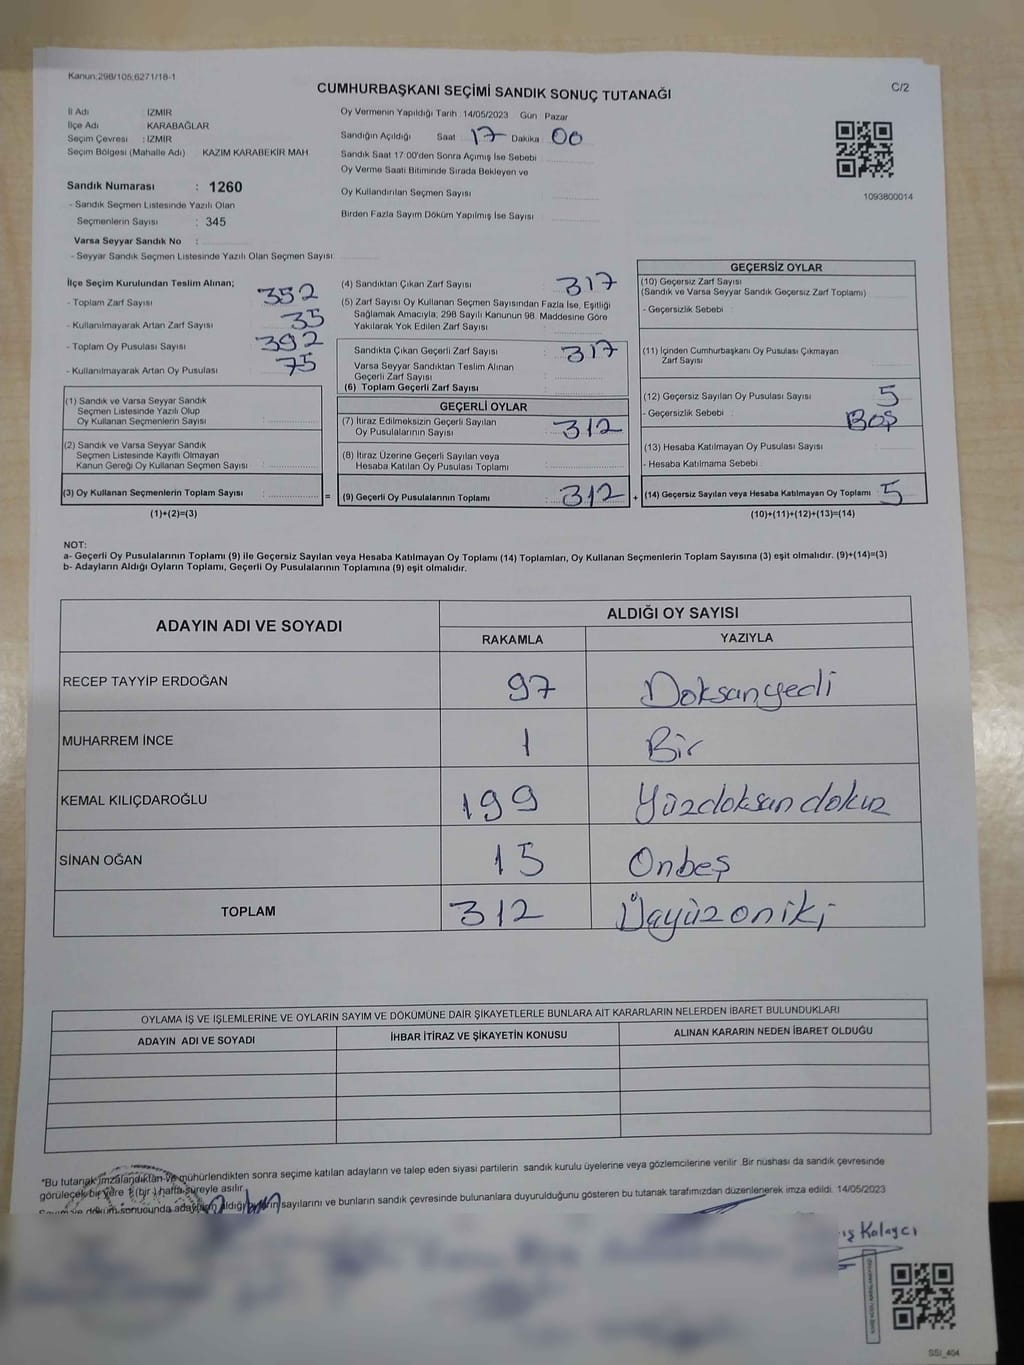 Kanun;298/105;6271/18-1
CUMHURBAŞKANI SEÇİMİ SANDIK SONUÇ TUTANAĞI
C/2
İl Adı : İZMİR
İlçe Adı : KARABAĞLAR
Seçim Çevresi : İZMİR
Seçim Bölgesi (Mahalle Adı) KAZIM KARABEKİR MAH.
Sandık Numarası : 1260
- Sandık Seçmen Listesinde Yazılı Olan
Seçmenlerin Sayısı : 345
Varsa Seyyar Sandık No :
- Seyyar Sandık Seçmen Listesinde Yazılı Olan Seçmen Sayısı:
Oy Vermenin Yapıldığı Tarih : 14/05/2023 Gün : Pazar
Sandığın Açıldığı Saat : 17 Dakika : 00
Sandık Saat 17:00'den Sonra Açımış İse Sebebi :
Oy Verme Saati Bitiminde Sırada Bekleyen ve
Oy Kullandırılan Seçmen Sayısı :
Birden Fazla Sayım Döküm Yapılmış İse Sayısı :
1093800014
İlçe Seçim Kurulundan Teslim Alınan;
- Toplam Zarf Sayısı : 352
- Kullanılmayarak Artan Zarf Sayısı : 35
- Toplam Oy Pusulası Sayısı : 392
- Kullanılmayarak Artan Oy Pusulası : 75
(1) Sandık ve Varsa Seyyar Sandık
Seçmen Listesinde Yazılı Olup
Oy Kullanan Seçmenlerin Sayısı :
(2) Sandık ve Varsa Seyyar Sandık
Seçmen Listesinde Kayıtlı Olmayan
Kanun Gereği Oy Kullanan Seçmen Sayısı :
(3) Oy Kullanan Seçmenlerin Toplam Sayısı :
(1)+(2)=(3)
=
(4) Sandıktan Çıkan Zarf Sayısı : 317
(5) Zarf Sayısı Oy Kullanan Seçmen Sayısından Fazla İse, Eşitliği
Sağlamak Amacıyla; 298 Sayılı Kanunun 98. Maddesine Göre
Yakılarak Yok Edilen Zarf Sayısı :
Sandıkta Çıkan Geçerli Zarf Sayısı : 317
Varsa Seyyar Sandıktan Teslim Alınan
Geçerli Zarf Sayısı :
(6) Toplam Geçerli Zarf Sayısı :
GEÇERLİ OYLAR
(7) İtiraz Edilmeksizin Geçerli Sayılan
Oy Pusulalarının Sayısı : 312
(8) İtiraz Üzerine Geçerli Sayılan veya
Hesaba Katılan Oy Pusulası Toplamı :
(9) Geçerli Oy Pusulalarının Toplamı : 312
+
GEÇERSİZ OYLAR
(10) Geçersiz Zarf Sayısı
(Sandık ve Varsa Seyyar Sandık Geçersiz Zarf Toplamı) :
- Geçersizlik Sebebi :
(11) İçinden Cumhurbaşkanı Oy Pusulası Çıkmayan
Zarf Sayısı :
(12) Geçersiz Sayılan Oy Pusulası Sayısı : 5
- Geçersizlik Sebebi : BOŞ
(13) Hesaba Katılmayan Oy Pusulası Sayısı :
- Hesaba Katılmama Sebebi :
(14) Geçersiz Sayılan veya Hesaba Katılmayan Oy Toplamı : 5
(10)+(11)+(12)+(13)=(14)
NOT:
a- Geçerli Oy Pusulalarının Toplamı (9) ile Geçersiz Sayılan veya Hesaba Katılmayan Oy Toplamı (14) Toplamları, Oy Kullanan Seçmenlerin Toplam Sayısına (3) eşit olmalıdır. (9)+(14)=(3)
b- Adayların Aldığı Oyların Toplamı, Geçerli Oy Pusulalarının Toplamına (9) eşit olmalıdır.
ADAYIN ADI VE SOYADI
ALDIĞI OY SAYISI
RAKAMLA YAZIYLA
RECEP TAYYİP ERDOĞAN 97 Doksanyedi
MUHARREM İNCE 1 Bir
KEMAL KILIÇDAROĞLU 199 Yüzdoksan dokuz
SİNAN OĞAN 15 Onbeş
TOPLAM 312 Üçyüz oniki
OYLAMA İŞ VE İŞLEMLERİNE VE OYLARIN SAYIM VE DÖKÜMÜNE DAİR ŞİKAYETLERLE BUNLARA AİT KARARLARIN NELERDEN İBARET BULUNDUKLARI
ADAYIN ADI VE SOYADI İHBAR İTİRAZ VE ŞİKAYETİN KONUSU ALINAN KARARIN NEDEN İBARET OLDUĞU
*Bu tutanak imzalandıktan ve mühürlendikten sonra seçime katılan adayların ve talep eden siyasi partilerin sandık kurulu üyelerine veya gözlemcilerine verilir. Bir nüshası da sandık çevresinde
görülecek bir yere 1 (bir) hafta süreyle asılır.
Sayım ve döküm sonucunda adayların aldığı oyların sayılarını ve bunların sandık çevresinde bulunanlara duyurulduğunu gösteren bu tutanak tarafımızdan düzenlenerek imza edildi. 14/05/2023
Kalaycı
SSİ_404